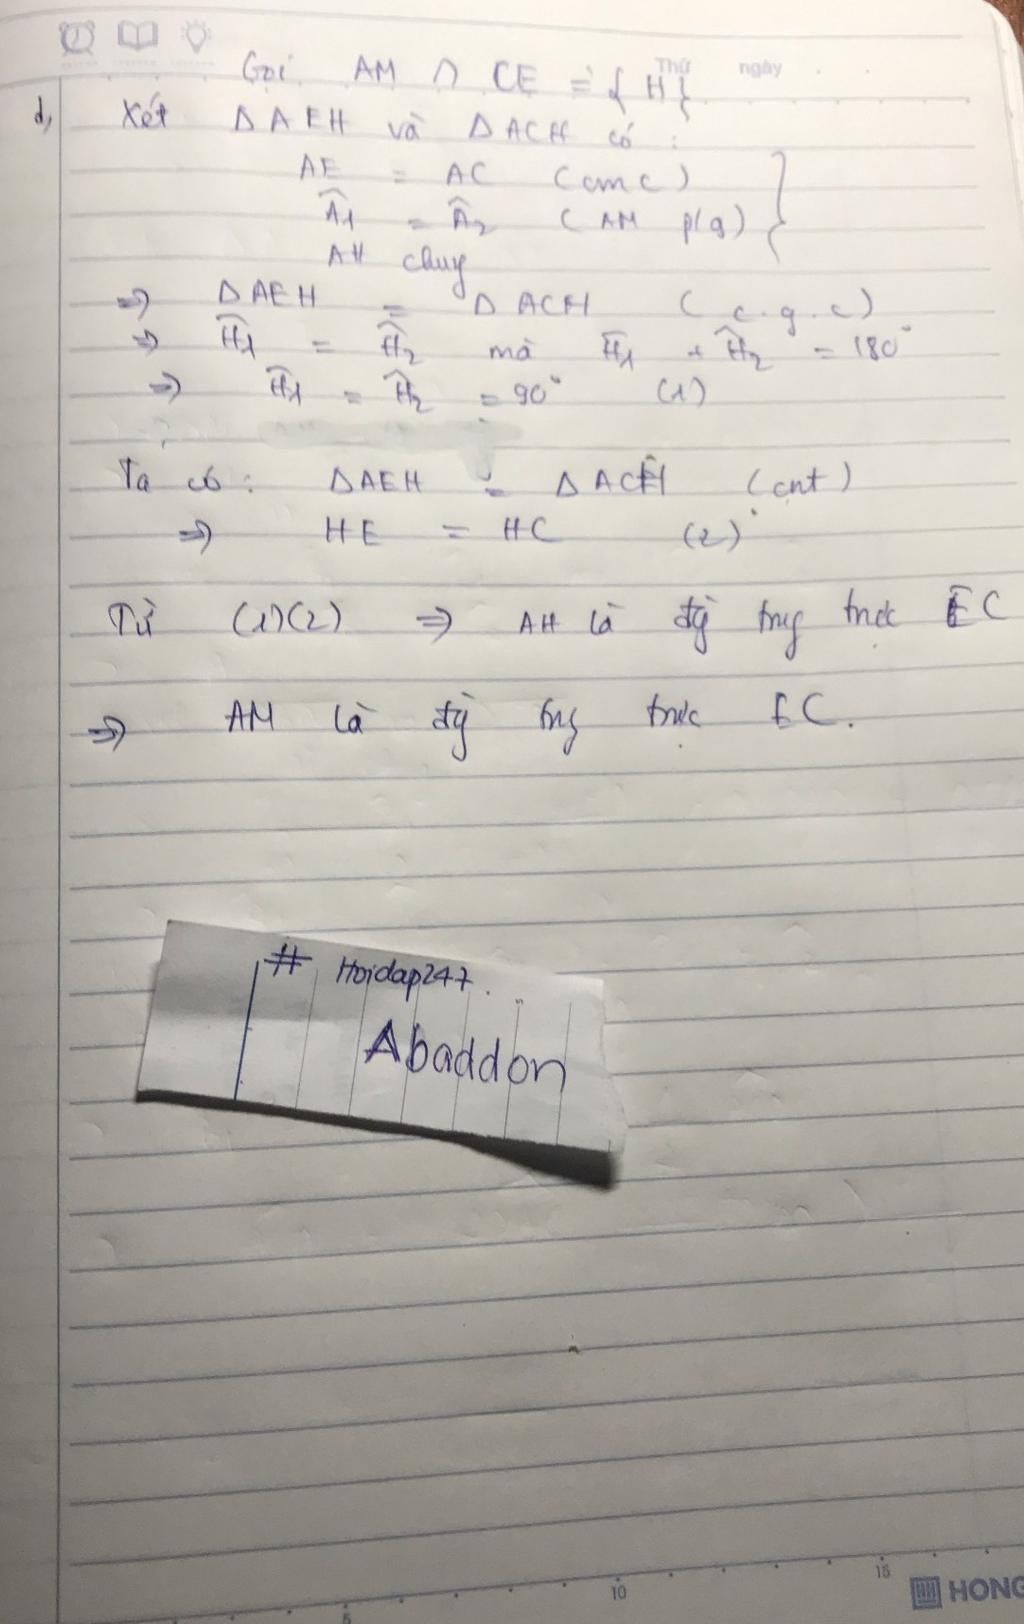 Thứ ngày
Gọi AM ∩ CE = { H }
d, Xét ΔAEH và ΔACH có :
AE = AC (cmc)
Â1 = Â2 (AM p/g)
AH chug
⇒ ΔAEH = ΔACH (c.g.c)
⇒ Ĥ1 = Ĥ2 mà Ĥ1 + Ĥ2 = 180°
⇒ Ĥ1 = Ĥ2 = 90° (1)
Ta có : ΔAEH = ΔACH (cnt)
⇒ HE = HC (2)
Từ (1)(2) ⇒ AH là đg trug trực EC
⇒ AM là đg trug trực EC.
# Hoidap247.
Abaddon
5 10 15
HONG